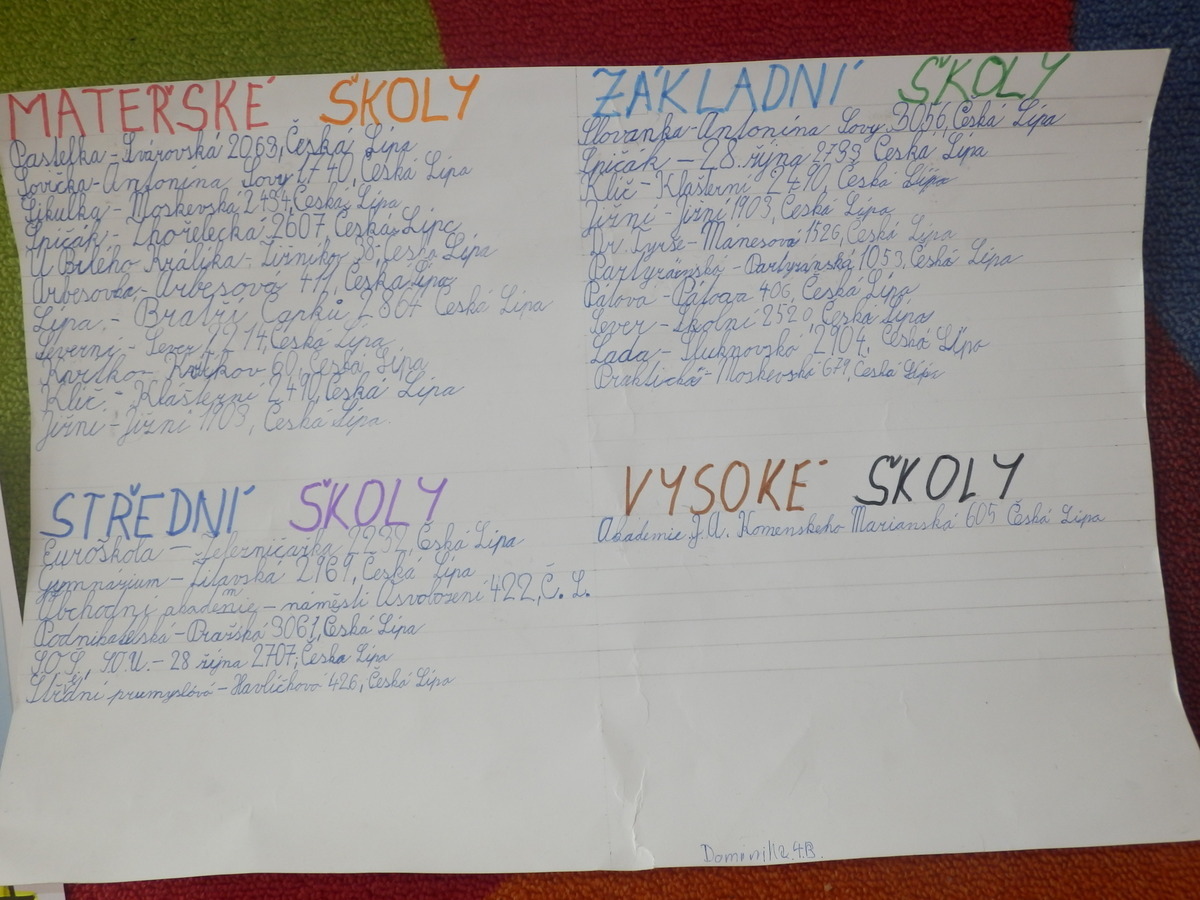 MATEŘSKÉ ŠKOLY
Pastelka - Svárovská 2063, Česká Lípa
Sovička - Antonína Sovy 1740, Česká Lípa
Sikulka - Moskevská 2434, Česká Lípa
Špičák - Zhořelecká 2607, Česká Lípa
U Bílého Králíka - Žižníkov 38, Česká Lípa
Arbesovka - Arbesová 411, Česká Lípa
Lípa - Bratří Čapků 2864 Česká Lípa
Severní - Sever 2214, Česká Lípa
60, Česká Lípa
Klíč - Klášterní 2490, Česká Lípa
Jižní - Jižní 1903, Česká Lípa.
ZÁKLADNÍ ŠKOLY
Slovanka - Antonína Sovy 3056, Česká Lípa
Špičák - 28. října 2733 Česká Lípa
Klíč - Klášterní 2490, Česká Lípa
Jižní - Jižní 1903, Česká Lípa
Dr. Tyrše - Mánesova 1526, Česká Lípa
Partyzánská - Partyzánská 1053, Česká Lípa
Pátova - Pátova 406, Česká Lípa
Sever - Školní 2520, Česká Lípa
Lada - Šluknovská 2904, Česká Lípa
Praktická - Moskevská 679, Česká Lípa
STŘEDNÍ ŠKOLY
Euroškola - Železničářká 2232, Česká Lípa
Gymnázium - Žitavská 2969, Česká Lípa
Obchodní akademie - náměstí Osvobození 422, Č. L.
Podnikatelská - Pražská 3061, Česká Lípa
S.O.Š., S.O.U. - 28 října 2707, Česka Lípa
Střední prumyslová - Havlíčkova 426, Česká Lípa
VYSOKÉ ŠKOLY
Akademie J. A. Komenskeho Marianská 605 Česká Lípa
Dominik 4.B.